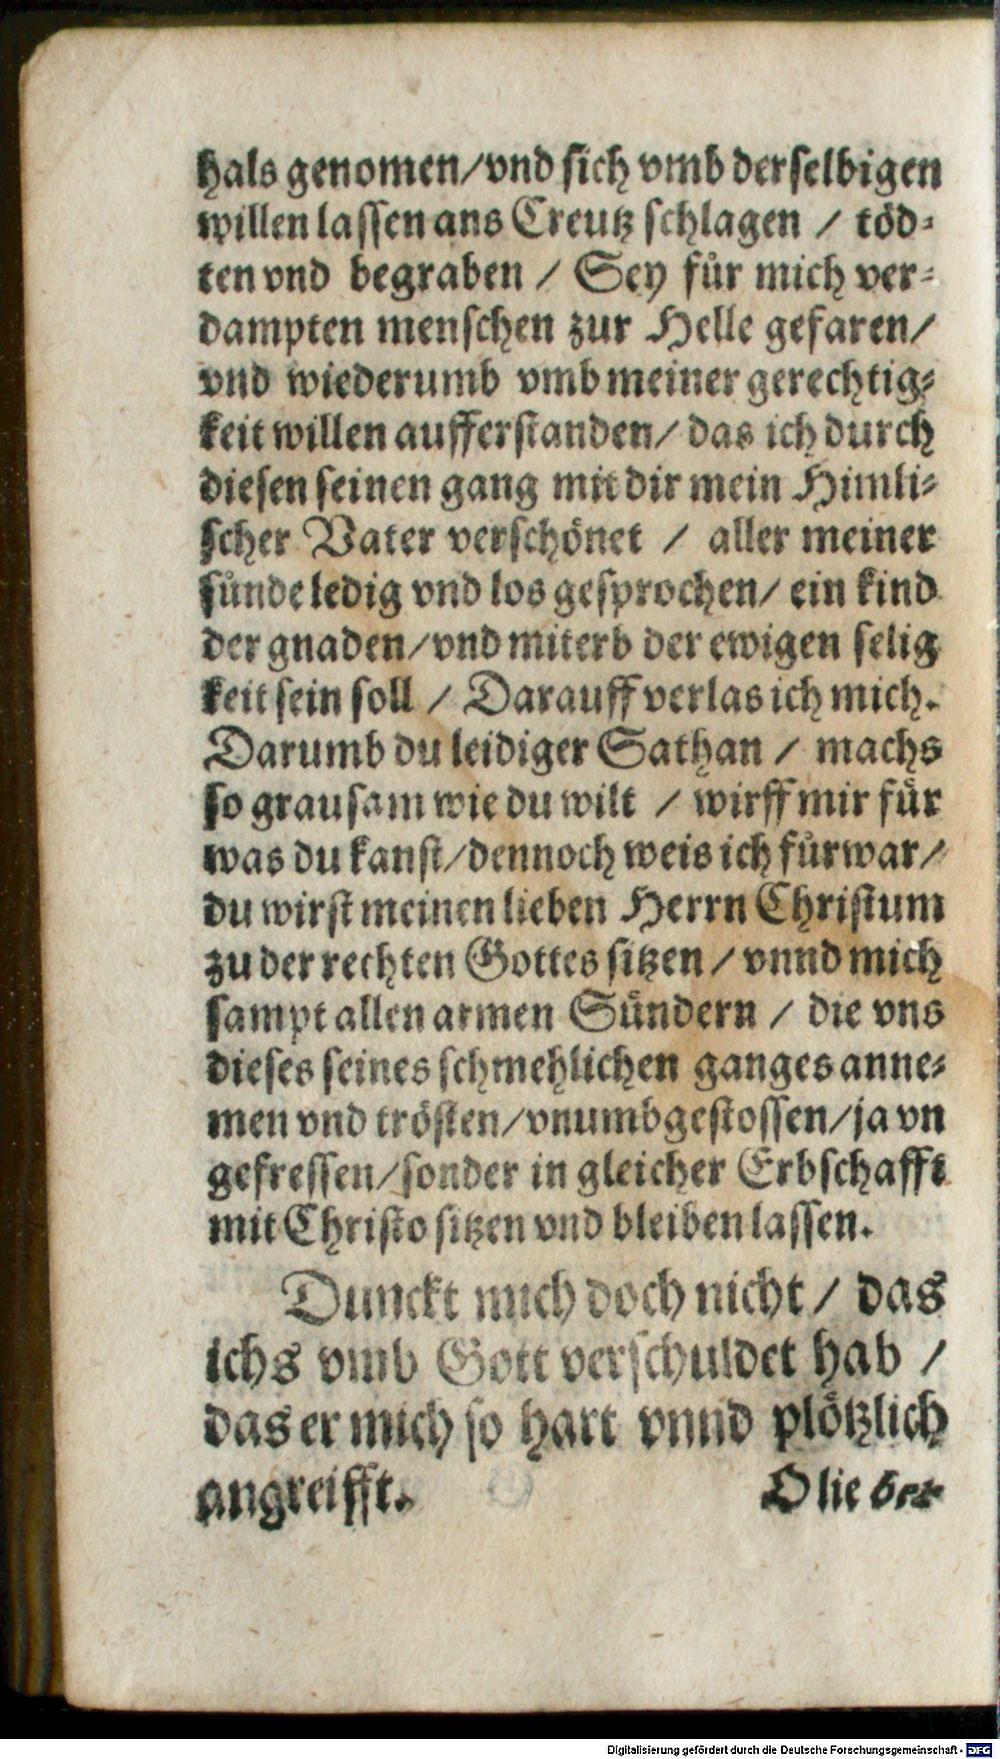 hals genomen/vnd sich vmb derselbigen
willen lassen ans Creutz schlagen / töd-
ten vnd begraben / Sey für mich ver-
dampten menschen zur Helle gefaren/
vnd wiederumb vmb meiner gerechtig-
keit willen aufferstanden/ das ich durch
diesen seinen gang mit dir mein Himli-
scher Vater verschönet / aller meiner
sünde ledig vnd los gesprochen/ ein kind
der gnaden/vnd miterb der ewigen selig
keit sein soll / Darauff verlas ich mich.
Darumb du leidiger Sathan / machs
so grausam wie du wilt / wirff mir für
was du kanst/dennoch weis ich fürwar/
du wirst meinen lieben Herrn Christum
zu der rechten Gottes sitzen / vnnd mich
sampt allen armen Sündern / die vns
dieses seines schmehlichen ganges anne-
men vnd trösten/vnumbgestossen/ja vn
gefressen/sonder in gleicher Erbschafft
mit Christo sitzen vnd bleiben lassen.
Dunckt mich doch nicht / das
ichs vmb Gott verschuldet hab /
das er mich so hart vnnd plötzlich
angreifft.
O lieber
Digitalisierung gefördert durch die Deutsche Forschungsgemeinschaft - DFG